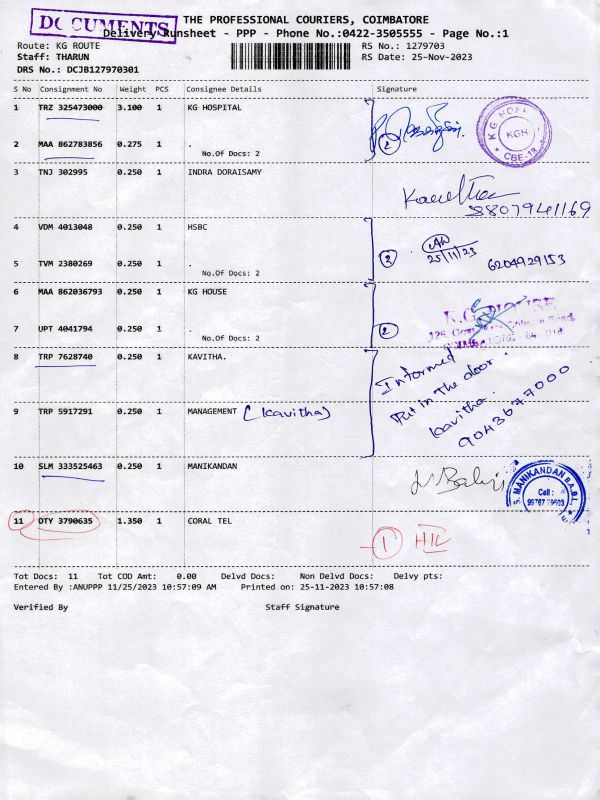 DOCUMENTS
THE PROFESSIONAL COURIERS, COIMBATORE
Delivery Runsheet - PPP - Phone No.:0422-3505555 - Page No.:1
Route: KG ROUTE
RS No.: 1279703
Staff: THARUN
RS Date: 25-Nov-2023
DRS No.: DCJB127970301
S No Consignment No Weight PCS Consignee Details Signature
1 TRZ 325473000 3.100 1 KG HOSPITAL
KGH
CBE-18
2 MAA 862783856 0.275 1 .
2
No.Of Docs: 2
3 TNJ 302995 0.250 1 INDRA DORAISAMY
8807941169
4 VDM 4013048 0.250 1 HSBC
25/11/23
5 TVM 2380269 0.250 1 .
2
6204929153
No.Of Docs: 2
6 MAA 862036793 0.250 1 KG HOUSE
K.G. HOUSE
7 UPT 4041794 0.250 1 .
2
No.Of Docs: 2
8 TRP 7628740 0.250 1 KAVITHA.
Informed
Put in the door.
Kavitha.
9043677000
9 TRP 5917291 0.250 1 MANAGEMENT (Kavitha)
10 SLM 333525463 0.250 1 MANIKANDAN
S. MANIKANDAN B.A.B.L.
Call :
11 OTY 3790635 1.350 1 CORAL TEL
1
Tot Docs: 11 Tot COD Amt: 0.00 Delvd Docs: Non Delvd Docs: Delvy pts:
Entered By :ANUPPP 11/25/2023 10:57:09 AM Printed on: 25-11-2023 10:57:08
Verified By Staff Signature